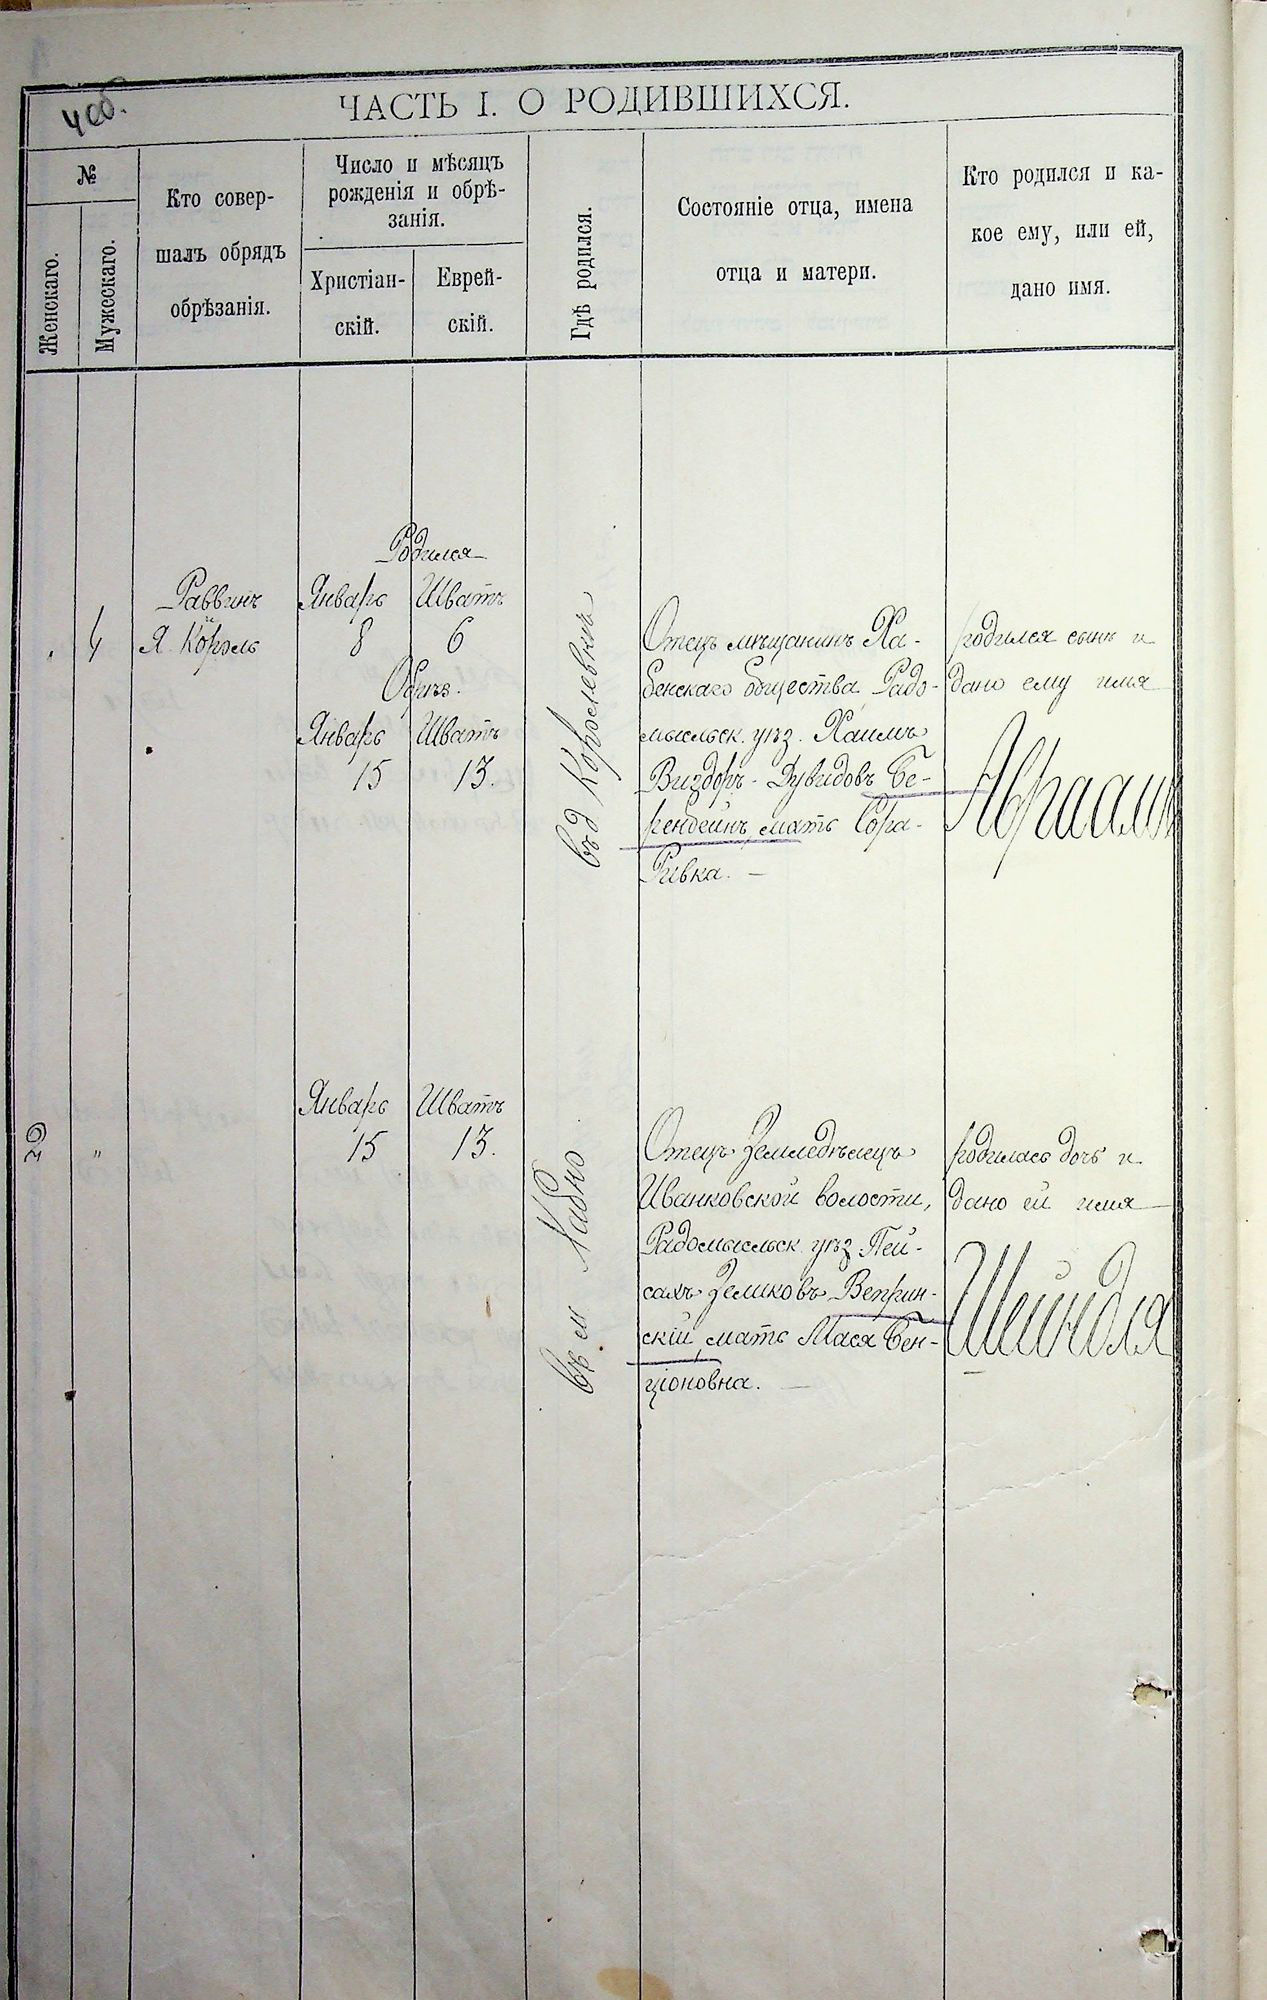 4 об.
ЧАСТЬ I. О РОДИВШИХСЯ.
№
Женскаго.
Мужескаго.
Кто совер-
шалъ обрядъ
обрѣзанія.
Число и мѣсяцъ
рожденія и обрѣ-
занія.
Христіан-
скій.
Еврей-
скій.
Гдѣ родился.
Состояніе отца, имена
отца и матери.
Кто родился и ка-
кое ему, или ей,
дано имя.
4
Раввинъ
Я. Король
Родился
Январь Шватъ
8 6
Обрѣз.
Январь Шватъ
15 13.
въ д Королевкѣ
Отецъ мѣщанинъ Ха-
бенскаго общества Радо-
мысльск. уѣз. Хаимъ
Виздоръ- Дувидовъ Бе-
рендейнъ, мать Сора-
Ривка. —
родился сынъ и
дано ему имя
Авраамъ
2
"
Январь Шватъ
15 13.
въ м Хабно
Отецъ Земледѣлецъ
Иванковской волости,
Радомысльск уѣз Пей-
сахъ Зеликовъ Веприн-
скій, мать Мася Бен-
ціоновна. —
родилась дочь и
дано ей имя
Шейндля